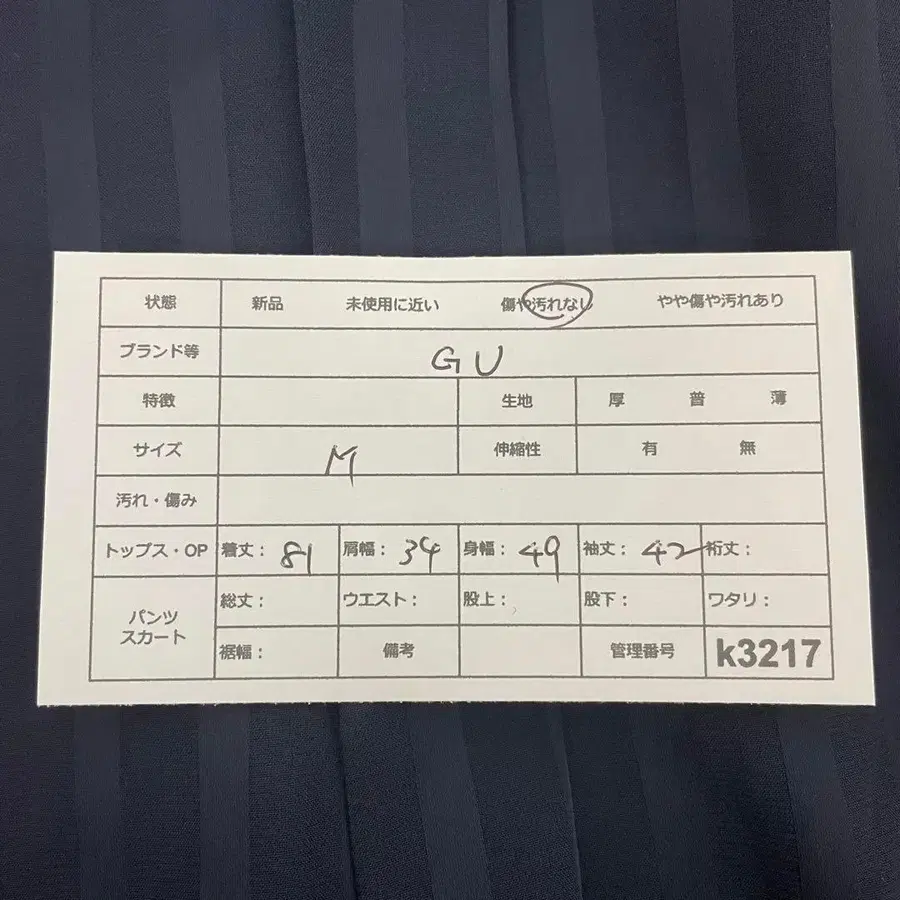 状態 新品 未使用に近い 傷や汚れなし やや傷や汚れあり
ブランド等 GU
特徴 生地 厚 普 薄
サイズ M 伸縮性 有 無
汚れ・傷み
トップス・OP 着丈： 81 肩幅： 34 身幅： 49 袖丈： 42 裄丈：
パンツ
スカート
総丈： ウエスト： 股上： 股下： ワタリ：
裾幅： 備考 管理番号 k3217